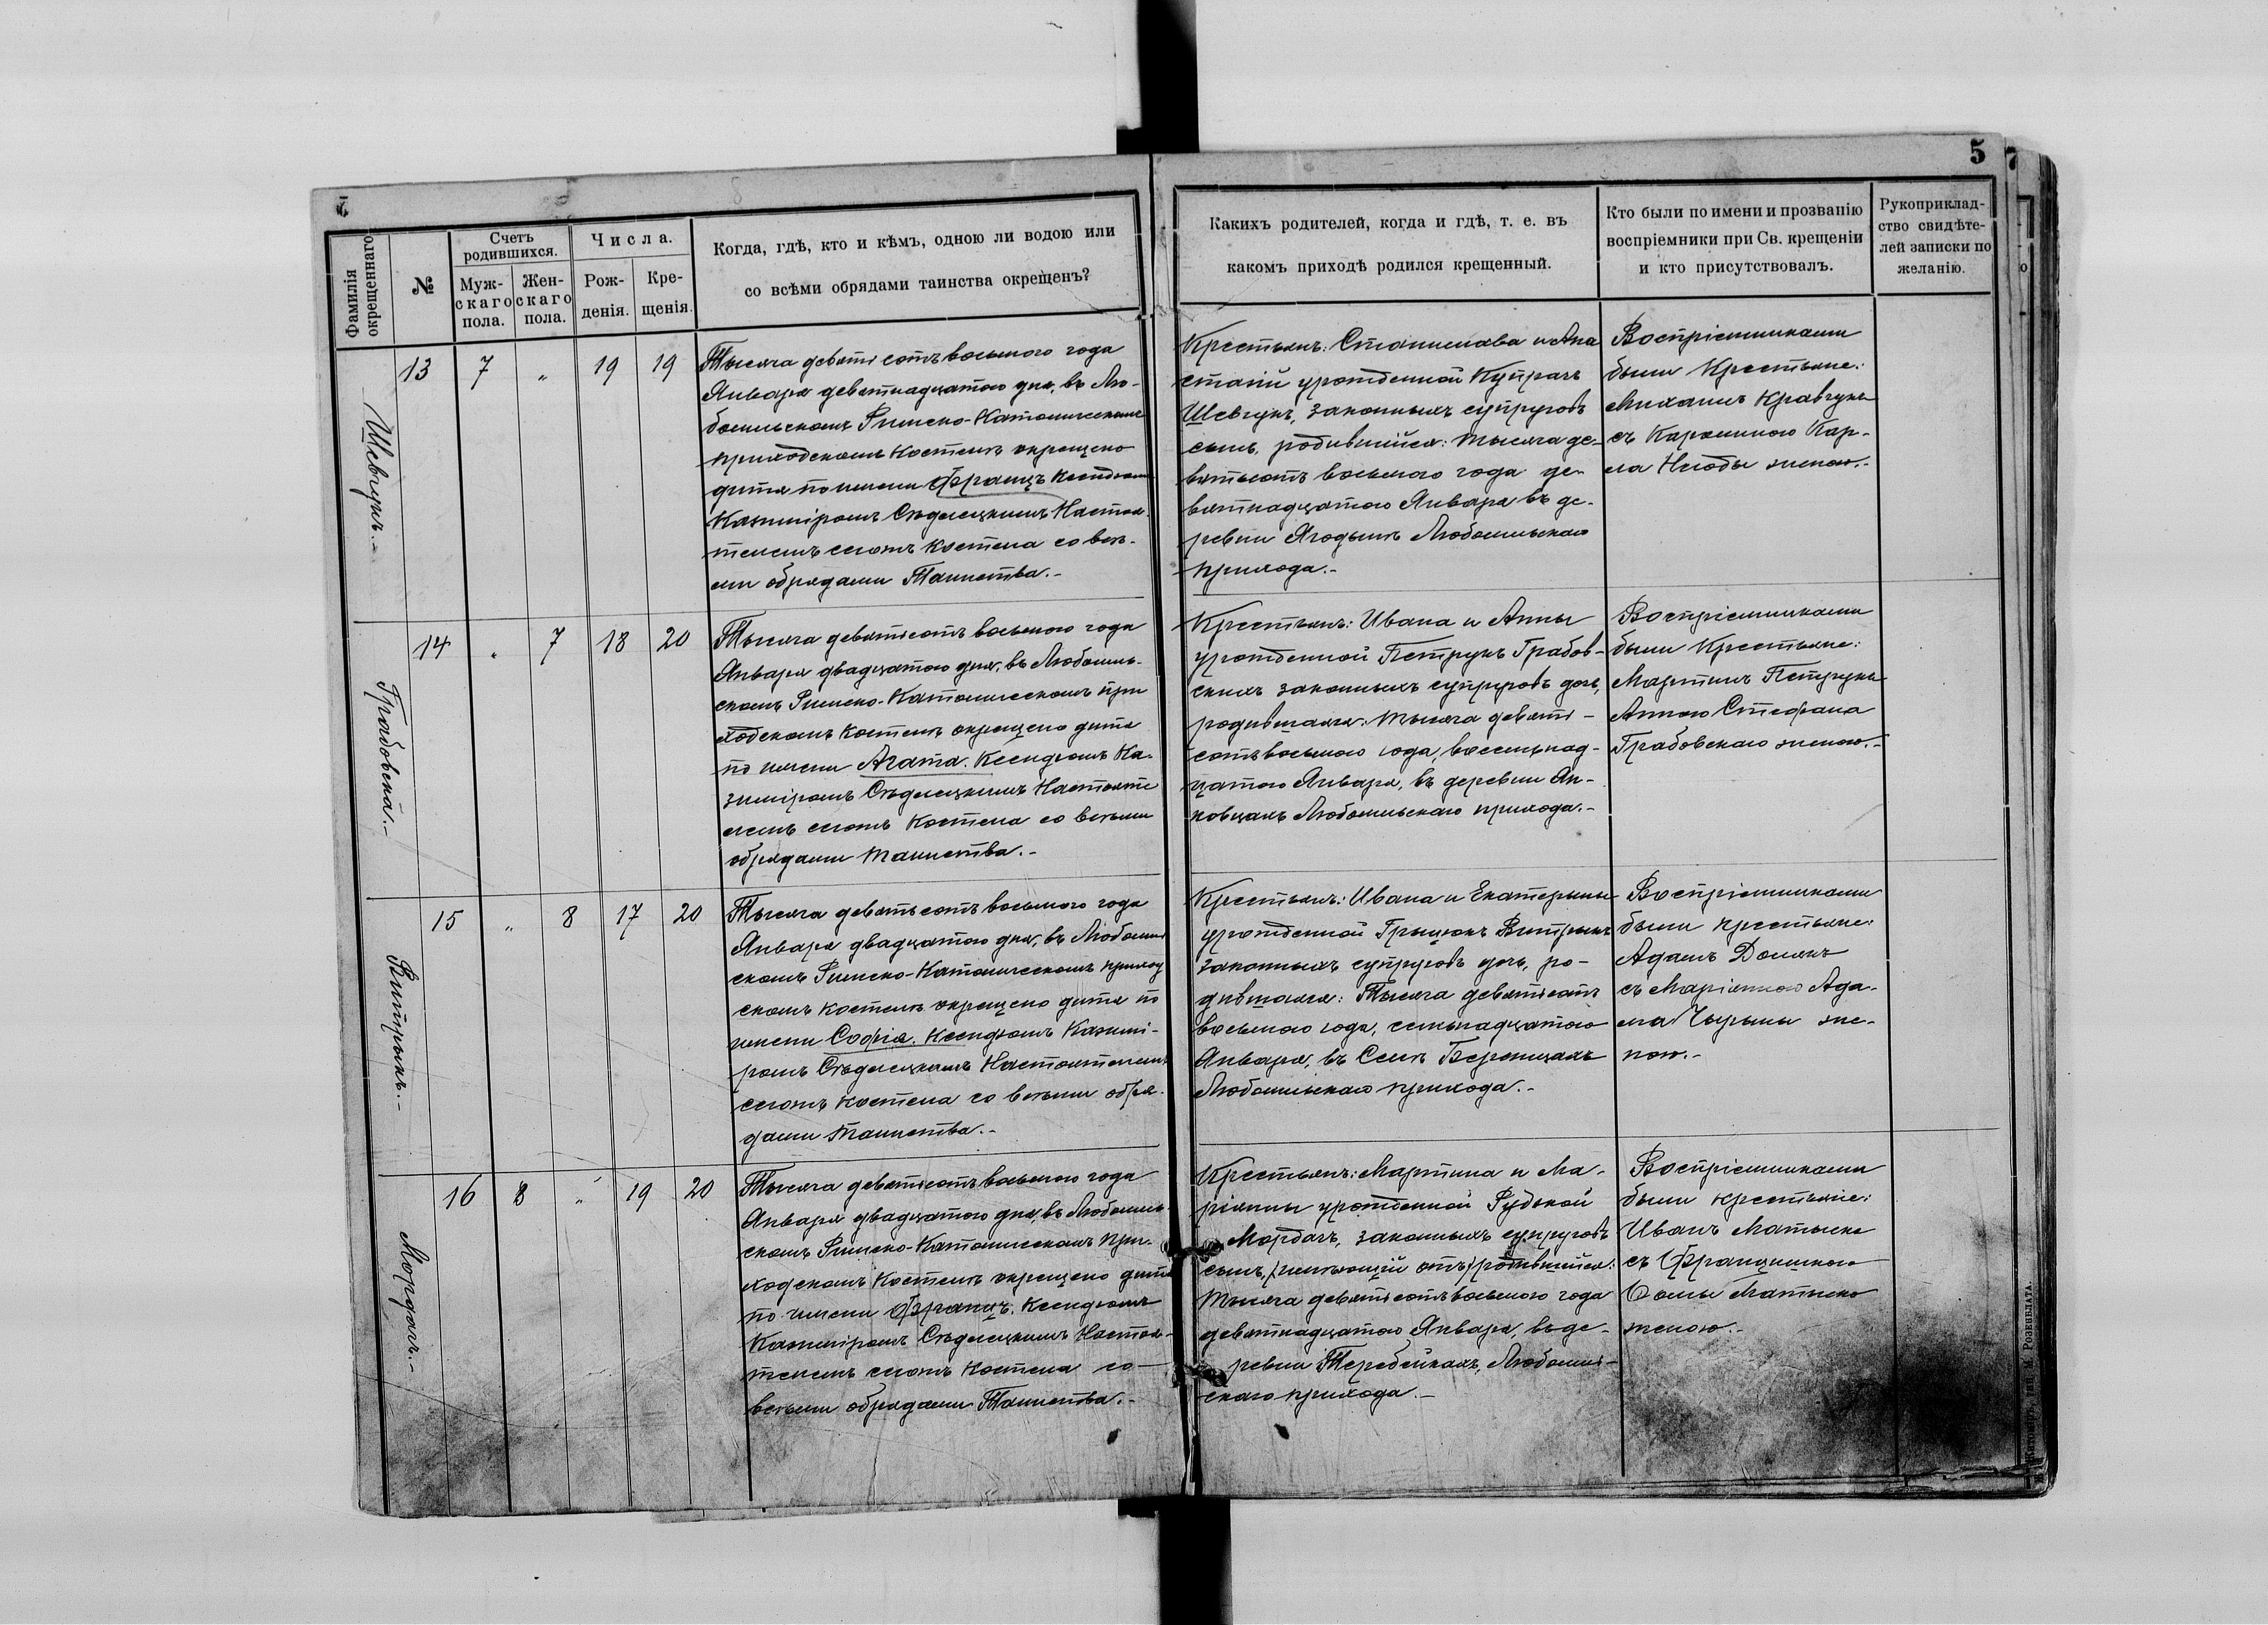 5
7
Фамилія окрещеннаго
№
Счетъ родившихся.
Муж-
скаго
пола.
Жен-
скаго
пола.
Числа.
Рож-
денія.
Кре-
щенія.
Когда, гдѣ, кто и кѣмъ, одною ли водою или
со всѣми обрядами таинства окрещенъ?
Какихъ родителей, когда и гдѣ, т. е. въ
какомъ приходѣ родился крещенный.
Кто были по имени и прозванію
воспріемники при Св. крещеніи
и кто присутствовалъ.
Рукоприклад-
ство свидѣте-
лей записки по
желанію.
Шевчукъ.-
13 7 „ 19 19
Тысяча девятьсотъ восьмого года
Января девятнадцатого дня, въ Лю-
бомльскомъ Римско-Католическомъ
приходскомъ костелѣ окрещено
дитя по имени Францъ Ксендзомъ
Казиміромъ Сѣдлецкимъ Настоя-
телемъ сегожъ костела со всѣ-
ми обрядами Таинства.-
Крестьянъ: Станислава и Ана
стазіи урожденной Купрачъ
Шевчукъ, законныхъ супруговъ
сынъ, родившійся: тысяча де-
вятьсотъ восьмого года де-
вятнадцатого Января въ де-
ревни Ягодынѣ Любомльскаго
прихода.-
Воспріемниками
были Крестьяне:
Михаилъ Кравчукъ
съ Каролиною Кар-
ла Нюды женою.-
Грабовска.-
14 „ 7 18 20
Тысяча девятьсотъ восьмого года
Января двадцатого дня, въ Любомль-
скомъ Римско-Католическомъ при
ходскомъ костелѣ окрещено дитя
по имени Агата. Ксендзомъ Ка-
зиміромъ Сѣдлецкимъ Настояте
лемъ сегожъ костела со всѣми
обрядами таинства.-
Крестьянъ: Ивана и Анны
урожденной Петрукъ Грабов-
скихъ законныхъ супруговъ дочь,
родившаяся: тысяча девять-
сотъ восьмого года, восемнад-
цатого Января, въ деревни Ян-
ковцахъ Любомльскаго прихода.-
Воспріемниками
были Крестьяне:
Мартинъ Петрукъ
Анною Стефана
Грабовскаго женою.-
Витрыкъ.-
15 „ 8 17 20
Тысяча девятьсотъ восьмого года
Января двадцатого дня, въ Любомль
скомъ Римско-Католическомъ приход
скомъ костелѣ окрещено дитя по
имени Софія. Ксендзомъ Казимі-
ромъ Сѣдлецкимъ Настоятелемъ
сегожъ костела со всѣми обря-
дами таинства.-
Крестьянъ: Ивана и Екатерины
урожденной Грыцюкъ Витрыкъ
законныхъ супруговъ дочь, ро-
дившаяся: Тысяча девятьсотъ
восьмого года, семьнадцатого
Января, въ Селѣ Бережцахъ
Любомльскаго прихода.-
Воспріемниками
были крестьяне:
Адамъ Домякъ
съ Маріянною Ада-
ма Чырыны же-
ною.-
Мордачъ.-
16 8 „ 19 20
Тысяча девятьсотъ восьмого года
Января двадцатого дня, въ Любомль-
скомъ Римско-Католическомъ при-
ходскомъ костелѣ окрещено дитя
по имени Францъ. Ксендзомъ
Казиміромъ Сѣдлецкимъ Настоя-
телемъ сегожъ костела со
всѣми обрядами Таинства.-
Крестьянъ: Мартина и Ма-
ріянны урожденной Рудской
Мордачъ, законныхъ супруговъ
сынъ, родившійся:
тысяча девятьсотъ восьмого года
девятнадцатого Января, въ де-
ревни Теребейкахъ, Любомль-
скаго прихода.-
Воспріемниками
были крестьяне:
Иванъ Матыско
съ Францишкою
Ѳомы Матыско
женою.-
Житомиръ, тип. М. Розенблата.